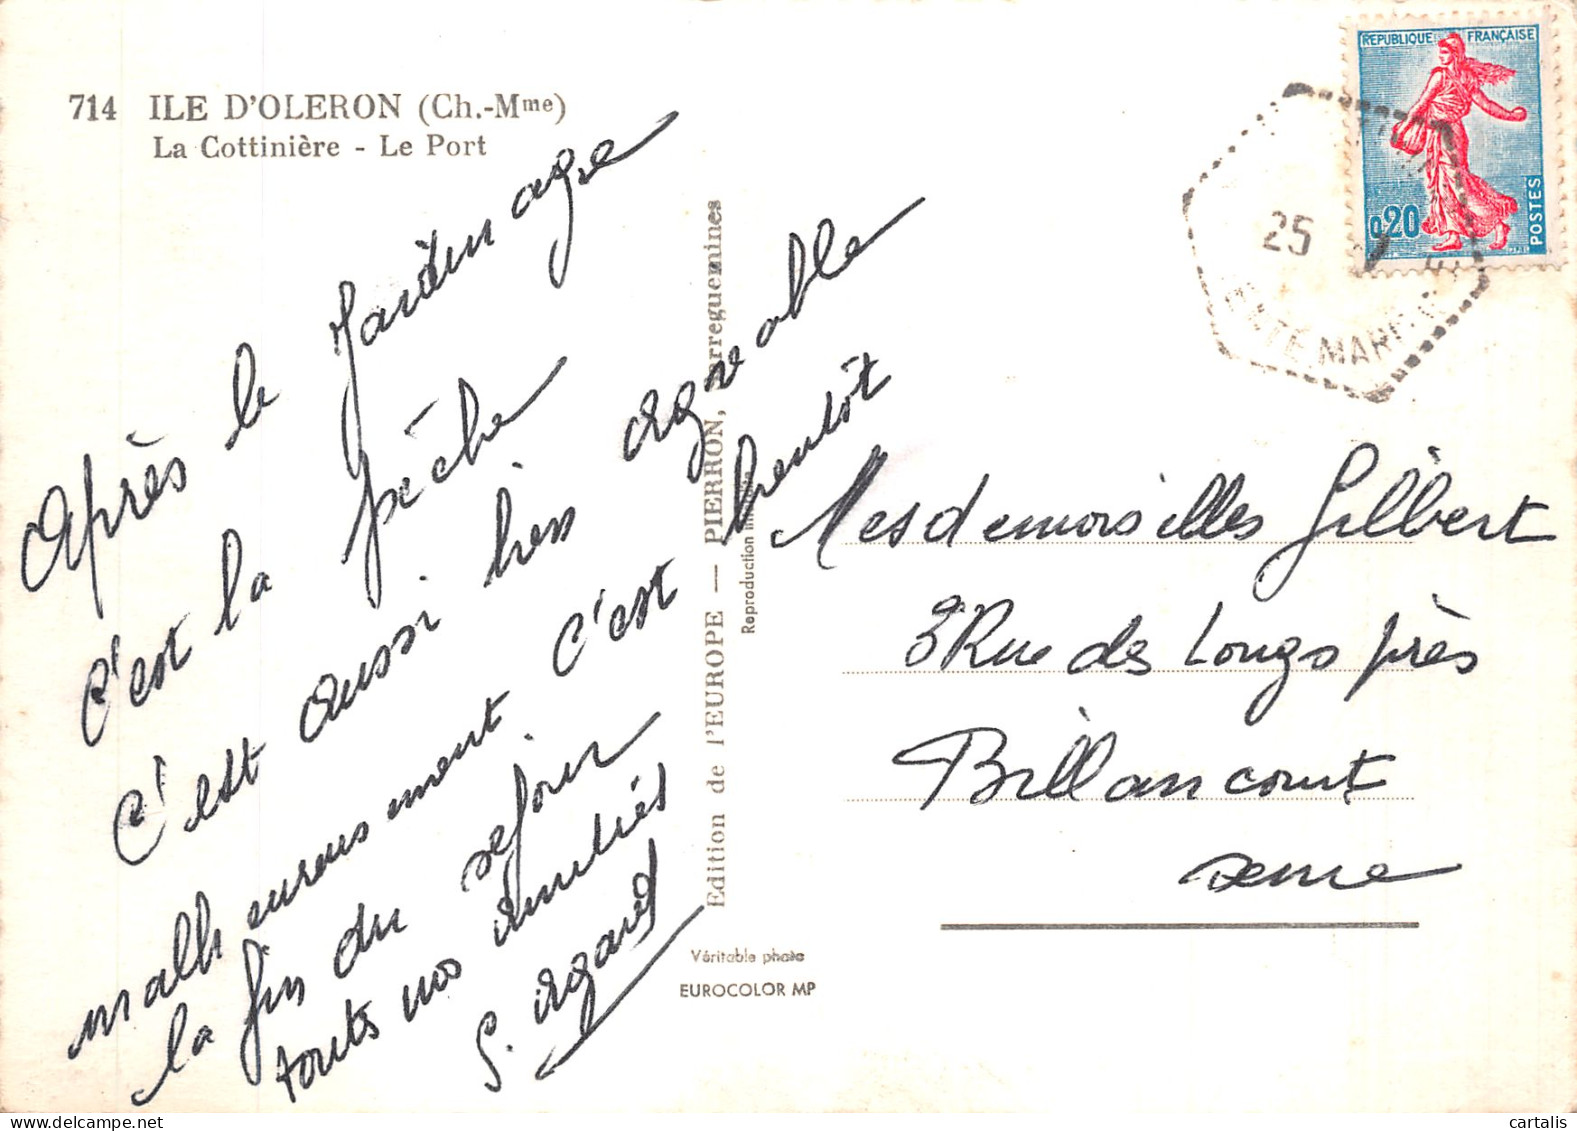 714 ILE D'OLERON (Ch.-Mme)
La Cottinière - Le Port
Après le Jardinage
c'est la pêche
C'est aussi très agréable
malheureusement c'est bientôt
la fin du séjour
toutes nos amitiés
Edition de l'EUROPE — PIERRON, Sarreguemines
Reproduction
Véritable photo
EUROCOLOR MP
REPUBLIQUE FRANÇAISE
0,20
POSTES
25
NTE MARIT
Mesdemoiselles Gilbert
Rue des Longs près
Billancourt
Seine
cartalis